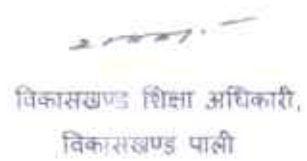 विकासखण्ड शिक्षा अधिकारी,
विकासखण्ड पाली